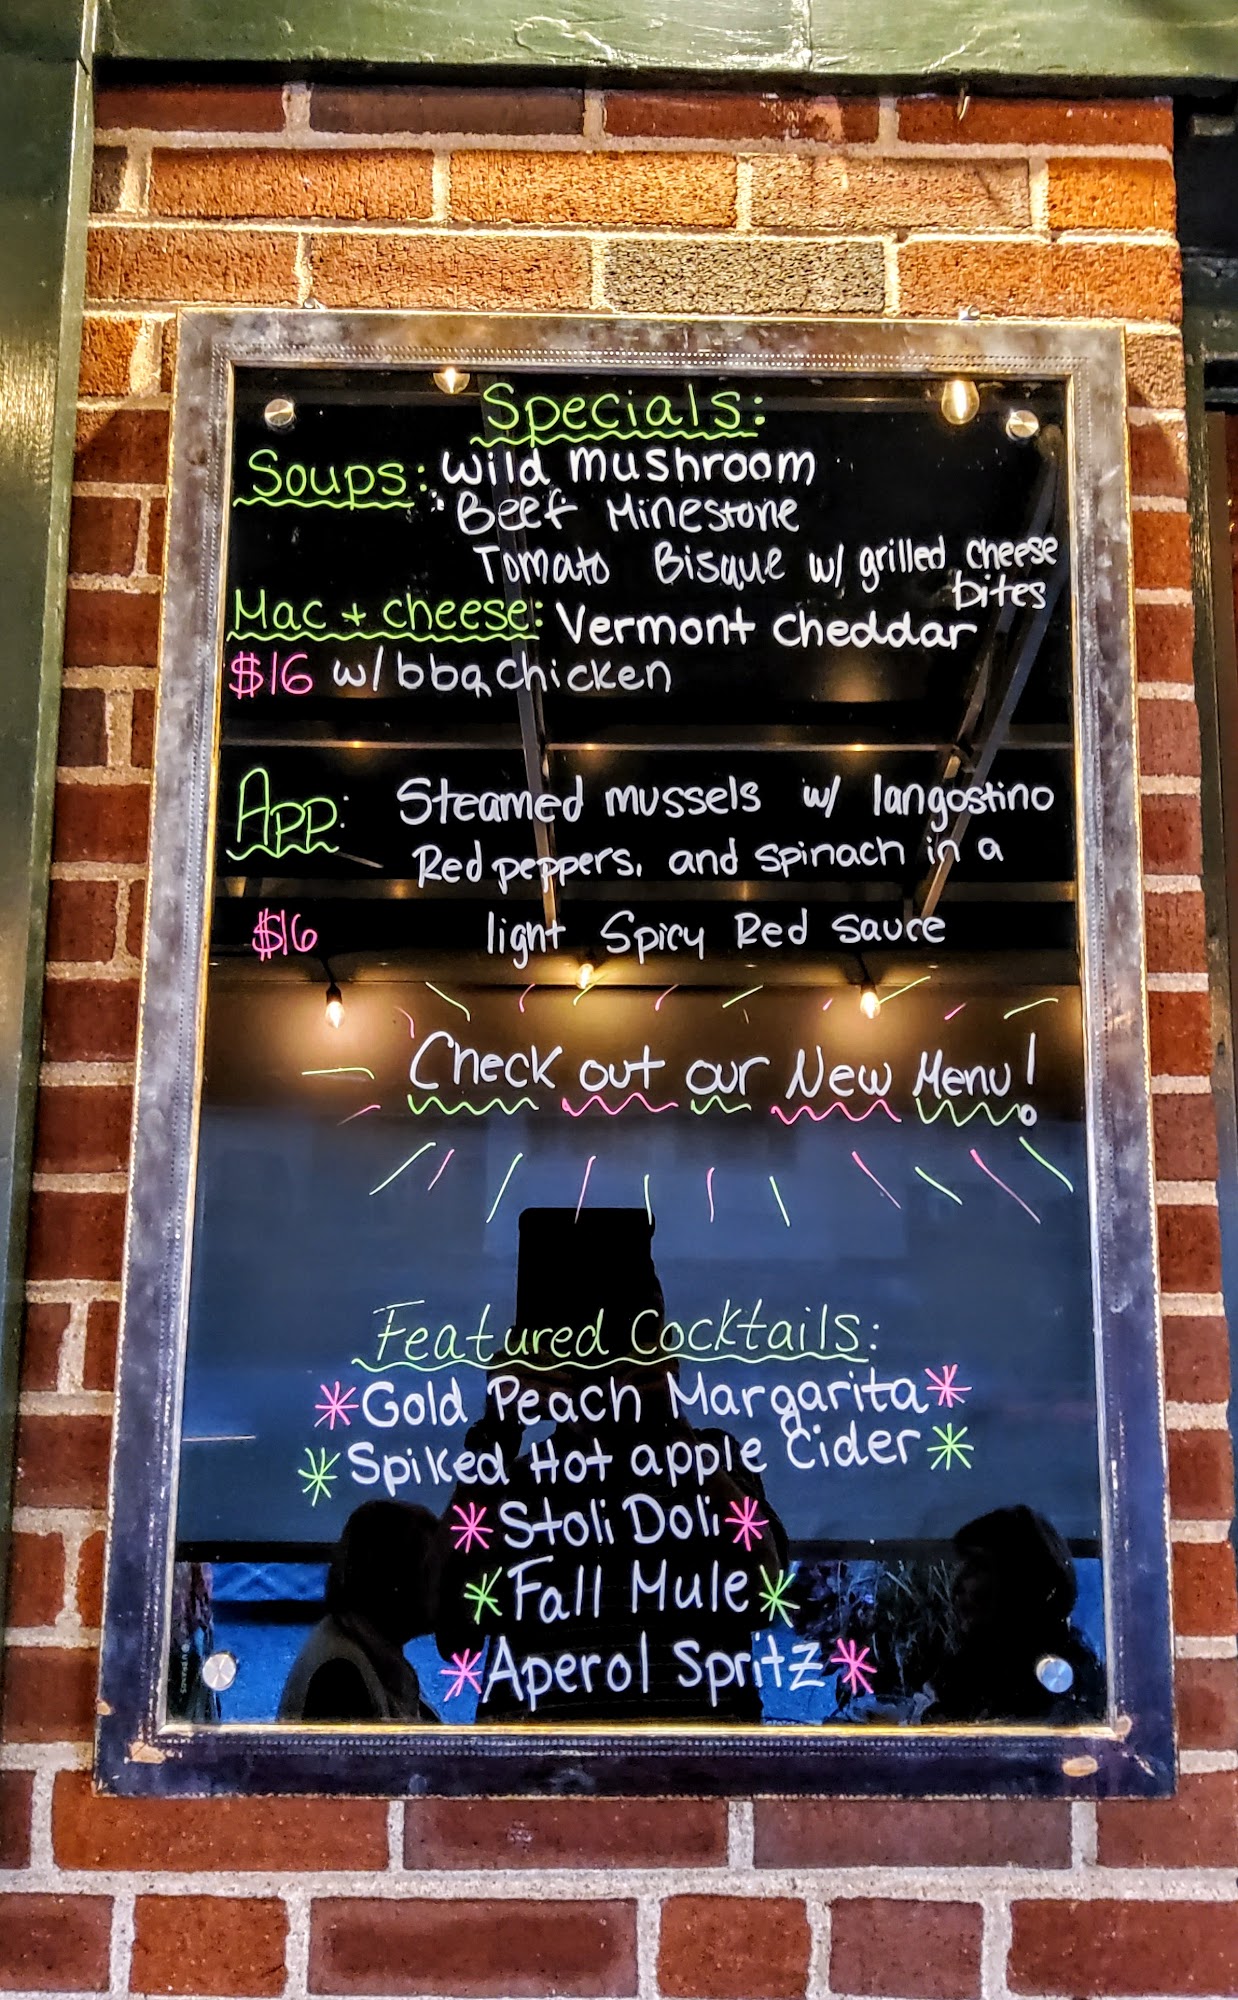 Specials:
Soups: Wild Mushroom
Beef Minestone
Tomato Bisque w/ grilled cheese
bites
Mac + cheese: Vermont cheddar
$16 w/ bbq chicken
App: Steamed mussels w/ langostino
Red peppers, and spinach in a
$16 light Spicy Red sauce
Check out our New Menu!
Featured Cocktails:
Gold Peach Margarita
Spiked Hot apple Cider
Stoli Doli
Fall Mule
Aperol Spritz